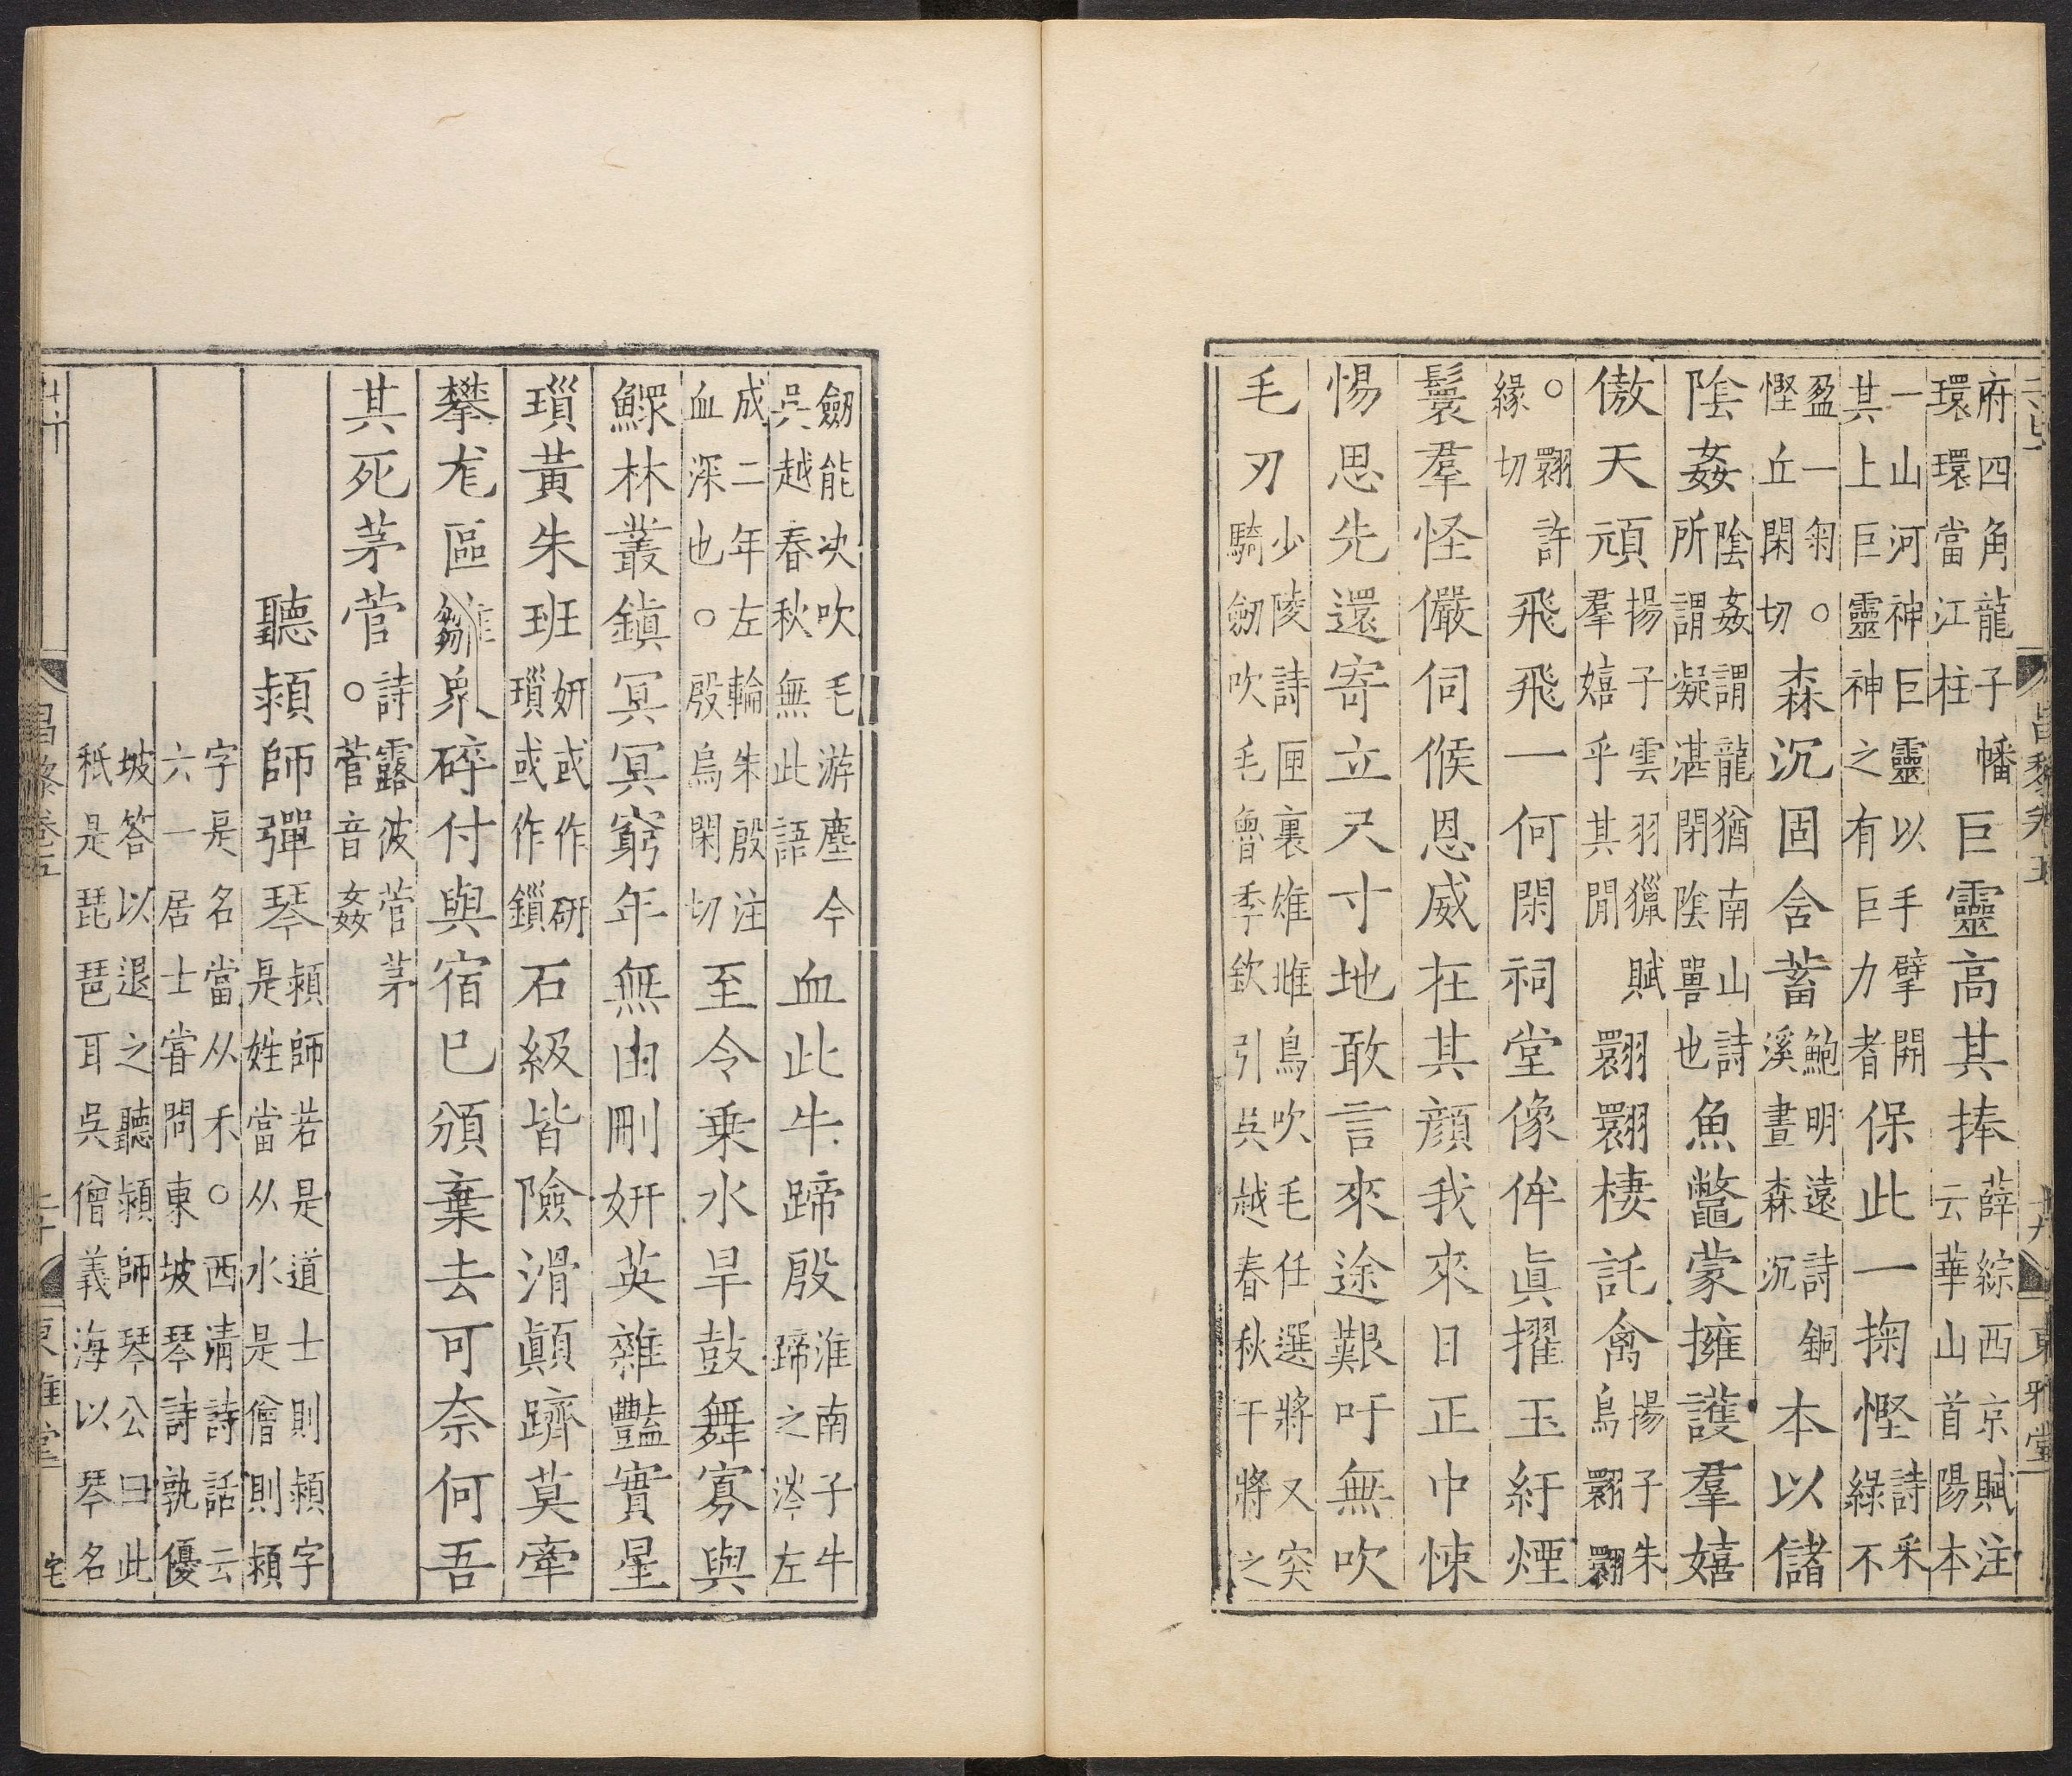 昌黎卷五 十九 東雅堂
府四角龍子幡環環當江柱巨靈高其捧薛綜西京賦注云華山首陽本
一山河神巨靈以手擘開其上巨靈神之有巨力者保此一掬慳詩采綠不
盈一匊○慳丘閑切森沉固含蓄鮑明遠詩銅溪晝森沉本以儲
陰姦陰姦謂龍猶南山詩所謂凝湛閉陰嘼也魚鼈蒙擁護羣嬉
傲天頑揚子雲羽獵賦羣嬉乎其閒翾翾棲託禽揚子朱鳥翾翾
○翾許緣切飛飛一何閑祠堂像侔眞擢玉紆煙
鬟羣怪儼伺候恩威在其顏我來日正中悚
惕思先還寄立尺寸地敢言來途艱吁無吹
毛刃少陵詩匣裏雄雌鳥吹毛任選將又突騎劒吹毛魯季欽引吳越春秋干將之
劒能决吹毛游塵今吳越春秋無此語血此牛蹄殷淮南子牛蹄之涔左
成二年左輪朱殷注血深也○殷烏閑切至令乗水旱鼓舞寡與
鰥林叢鎮冥冥窮年無由刪妍英雜豔實星
瑣黃朱班妍或作硏瑣或作鎻石級皆險滑顛躋莫牽
攀尨區雛衆碎付與宿巳頒棄去可奈何吾
其死茅菅詩露彼菅茅○菅音姦
聽頴師彈琴頴師若是道士則頴字是姓當从水是僧則頴
字是名當从禾○西淸詩話云六一居士甞問東坡琴詩孰優
坡答以退之聽頴師琴公曰此秖是琵琶耳吳僧義海以琴名
昌黎卷五 二十 東雅堂 宅